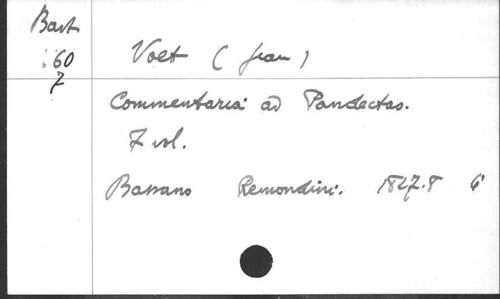 Bast
60
7
Voet (Jean)
Commentaria ad Pandectas.
7 vol.
Bassano Remondini. 1827.8 6